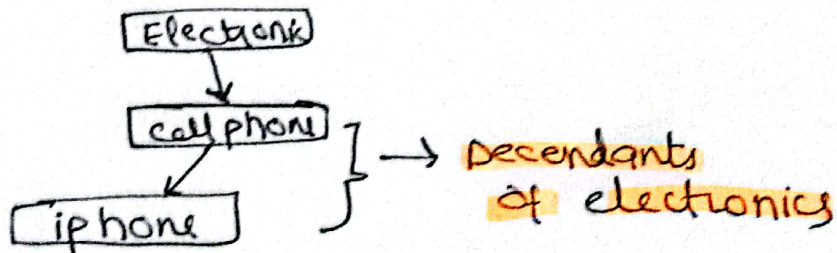 Electronk
cell phone
iphone
} → Decendants
of electronics